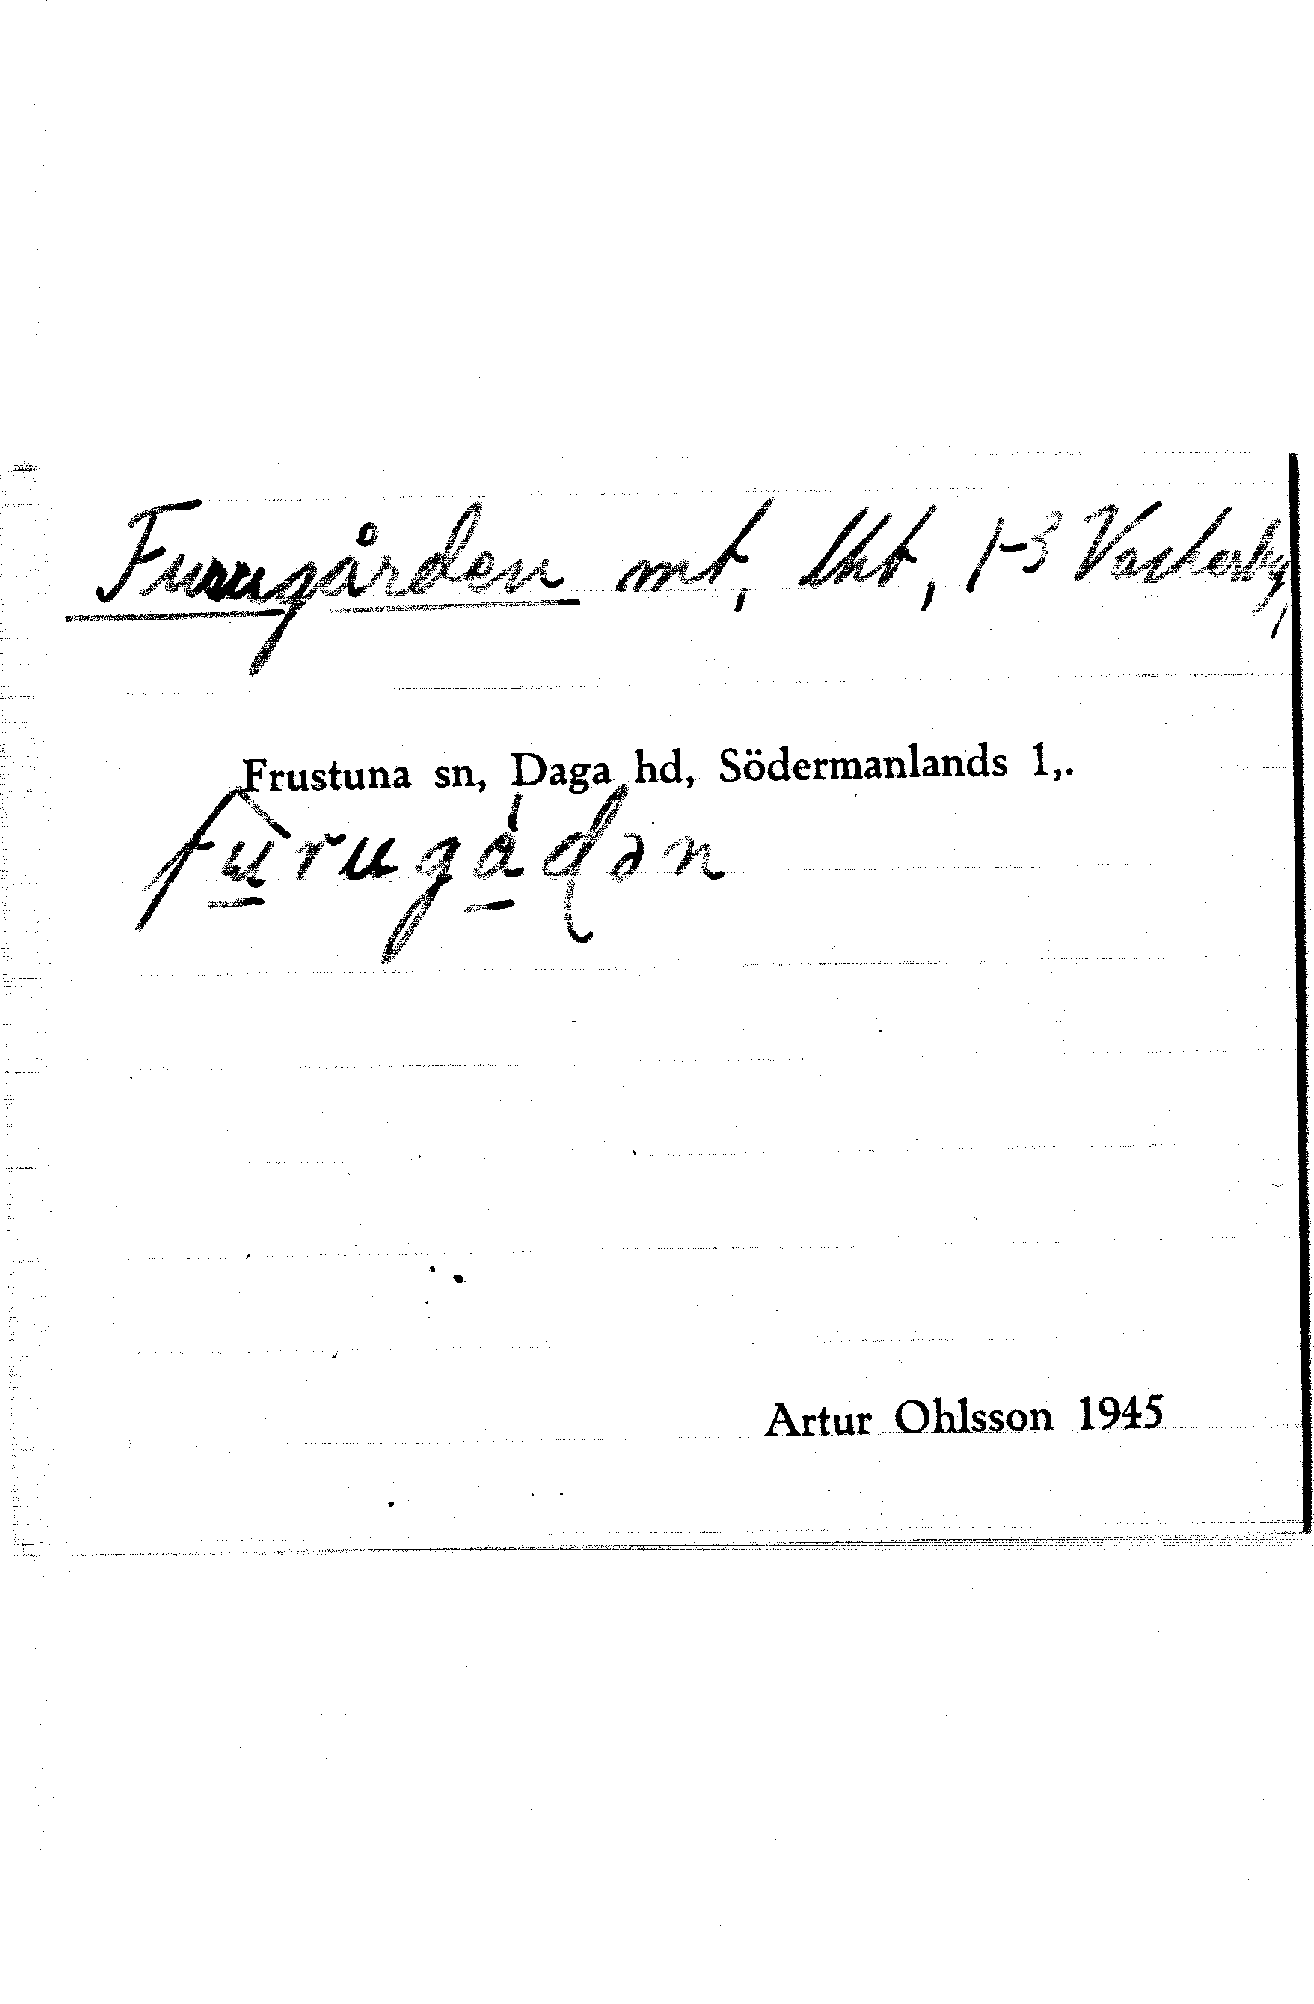 Furugården mt, lht, 1-3 Vackerby,
Frustuna sn, Daga hd, Södermanlands l,.
fu̲rugå̲dən
Artur Ohlsson 1945